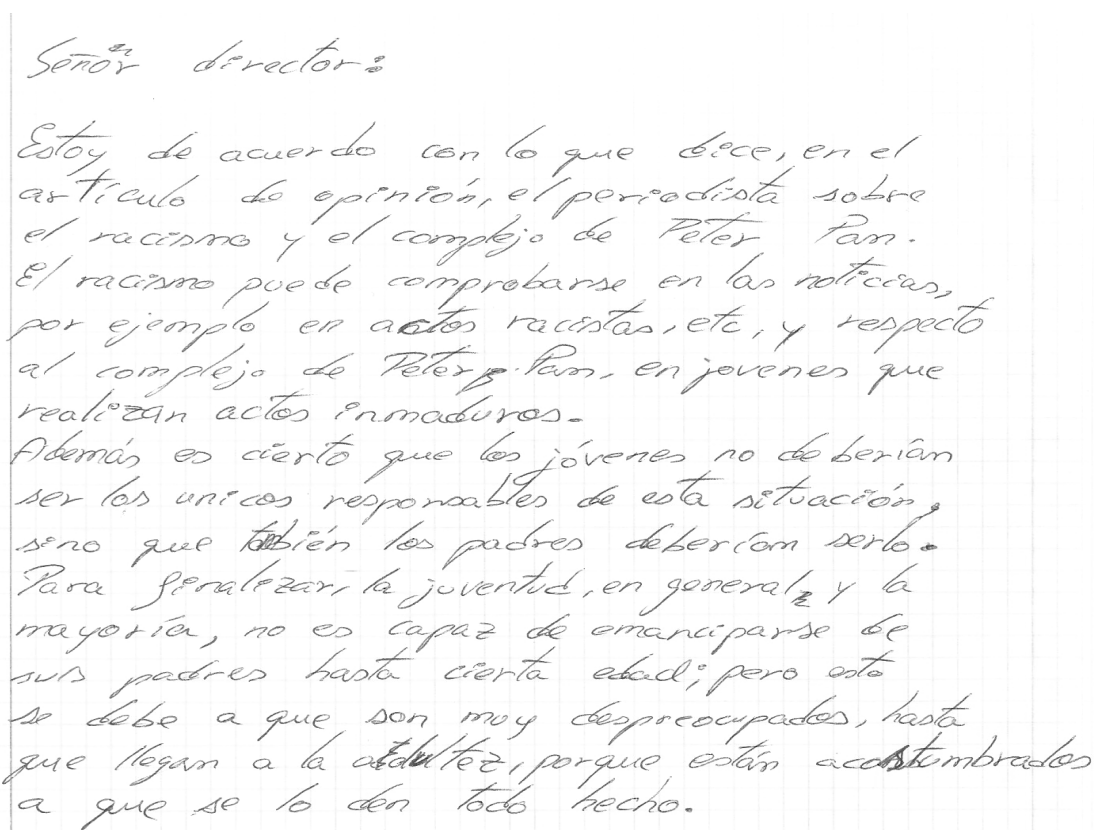 Señor director:
Estoy de acuerdo con lo que dice, en el
artículo de opinión, el periodista sobre
el racismo y el complejo de Peter Pan.
El racismo puede comprobarse en las noticias,
por ejemplo en actos racistas, etc, y respecto
al complejo de Peter Pan, en jovenes que
realizan actos inmaduros.
Además es cierto que los jóvenes no deberían
ser los unicos responsables de esta situación,
sino que tabién los padres deberían serlo.
Para finalizar, la juventud, en general, y la
mayoría, no es capaz de emanciparse de
sus padres hasta cierta edad; pero esto
se debe a que son muy despreocupados, hasta
que llegan a la adultez, porque están acostumbrados
a que se lo den todo hecho.